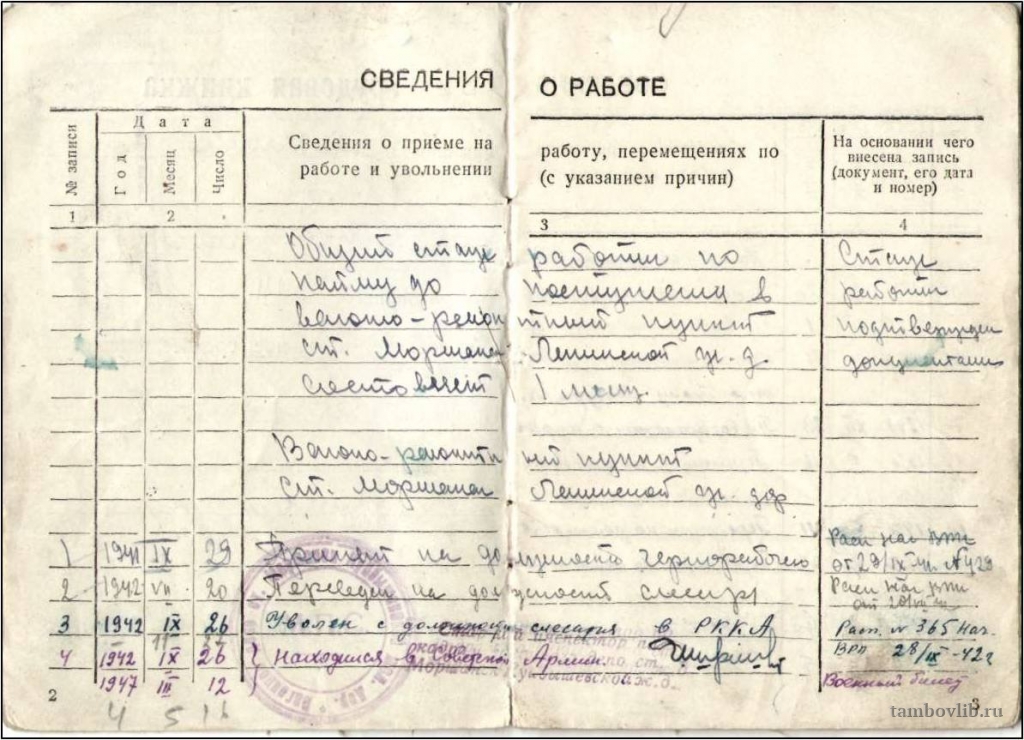 СВЕДЕНИЯ О РАБОТЕ
№ записи
Дата
Год
Месяц
Число
Сведения о приеме на работу, перемещениях по
работе и увольнении (с указанием причин)
На основании чего
внесена запись
(документ, его дата
и номер)
1 2 3 4
Общий стаж работы по Стаж
найму до поступления в работы
вагоно-ремонтный пункт подтвержден
ст. Моршанск Ленинской ж. д. документами
составляет 1 месяц
Вагоно-ремонтный пункт
ст. Моршанск Ленинской ж. дор
1 1941 IX 29 Принят на должность чернорабочего
от 29/IX-41 №429
2 1942 VII 20 Переведен на должность слесаря
3 1942 IX 26 Уволен с должности слесаря в РККА Расп. № 365 Нач.
ВРП 28/IX-42г
4 1942 IX 26 Находился в Советской Армии.
1947 III 12 Военный билет
4 5 16
2 3
tambovlib.ru